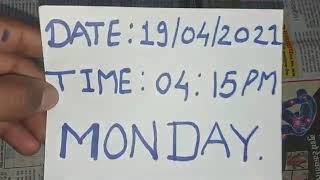 DATE: 19/04/2021
TIME: 04:15PM
MONDAY.